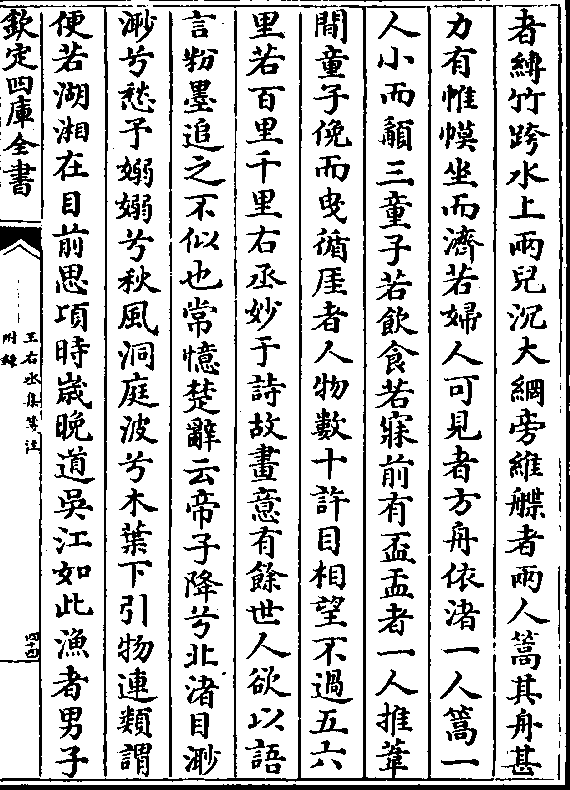 者縛竹跨水上兩兒沉大網旁維艓者兩人篙其舟甚
力有帷幙坐而濟若婦人可見者方舟依渚一人篙一
人小而顧三童子若飲食若寐前有盃盂者一人推葦
間童子俛而曵循厓者人物數十許目相望不過五六
里若百里千里右丞妙于詩故畫意有餘世人欲以語
言粉墨追之不似也常憶楚辭云帝子降兮北渚目渺
渺兮愁予嫋嫋兮秋風洞庭波兮木葉下引物連類謂
便若湖湘在目前思項時歲晚道吳江如此漁者男子
欽定四庫全書
王右丞集箋注
附録
四四